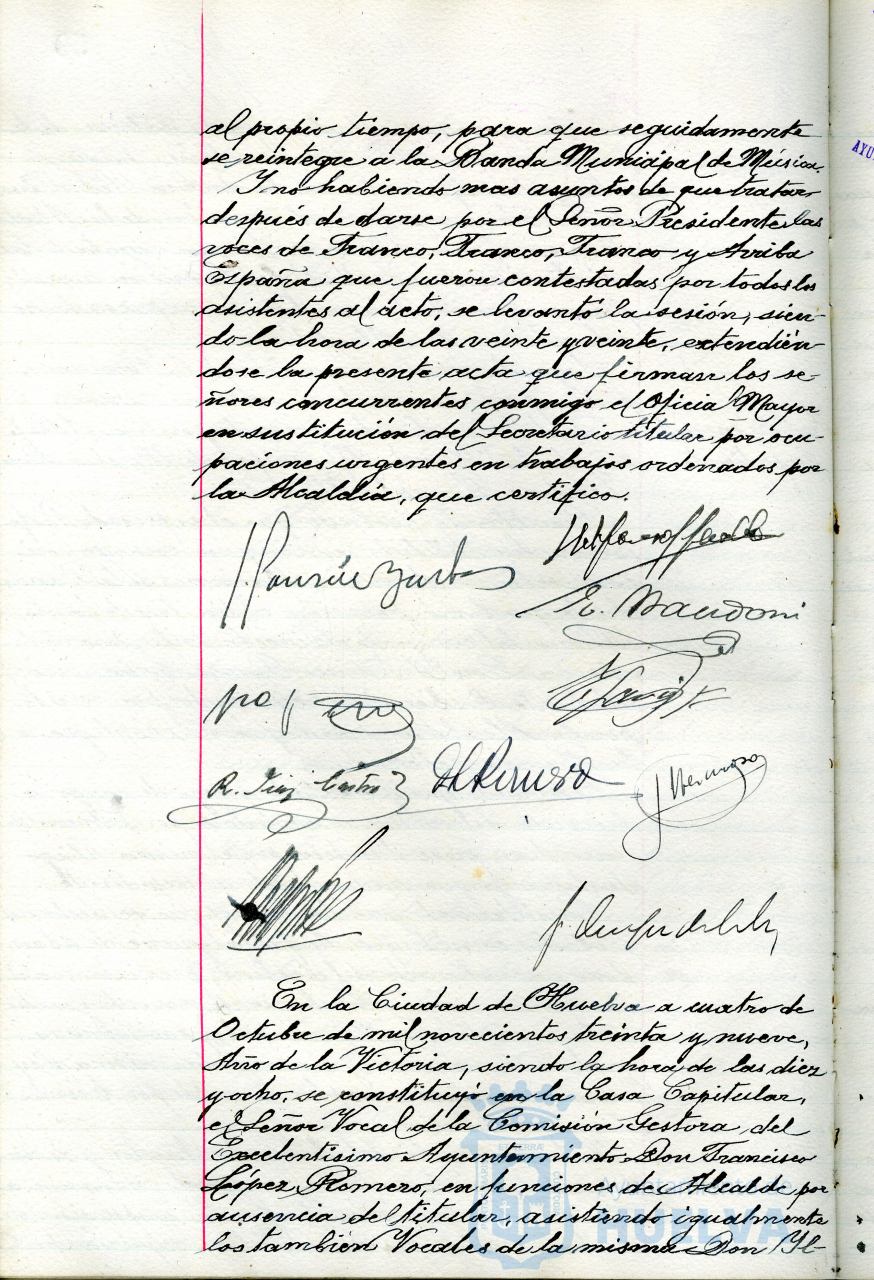 al propio tiempo, para que seguidamente
se reintegre a la Banda Municipal de Música.
Y no habiendo mas asuntos de que tratar,
después de darse por el Señor Presidente las
voces de Franco, Franco, Franco y Arriba
España que fueron contestadas por todos los
asistentes al acto, se levantó la sesión, sien-
do la hora de las veinte y veinte, extendién-
dose la presente acta que firman los se-
ñores concurrentes conmigo el Oficial Mayor
en sustitución del Secretario titular por ocu-
paciones urgentes en trabajos ordenados por
la Alcaldía, que certifico.
R. Castro
En la Ciudad de Huelva a cuatro de
Octubre de mil novecientos treinta y nueve,
Año de la Victoria, siendo la hora de las diez
y ocho, se constituyó en la Casa Capitular,
el Señor Vocal de la Comisión Gestora del
Excelentísimo Ayuntamiento Don Francisco
López Romero, en funciones de Alcalde por
ausencia del titular, asistiendo igualmente
los también Vocales de la misma Don Il-
Ayuntamiento de
HUELVA